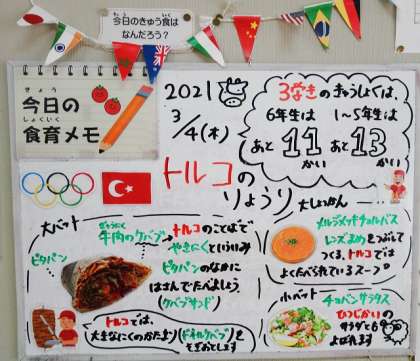 今日のきゅう食は
なんだろう？
きょう
今日の
しょくいく
食育メモ
2021
3/4(木)
3学きのきゅうしょくは、
6年生は 1～5年生は
あと11かい あと13かい
トルコの
りょうり
大しょかん
大バット
ぎゅうにく
牛肉のケバブ→トルコのことばで
やきにくといういみ
ピタパン
ピタパンのなかに
はさんでたべましょう
(ケバブサンド)
トルコでは、
大きなにくのかたまり(ドネルケバブ)を
そぎおとします
メルジメッキチョルバス
レンズまめをつぶして
つくる、トルコでは
よくたべられているスープ
小バット
チョバンサラタス
ひつじかいの
サラダとも
よばれます